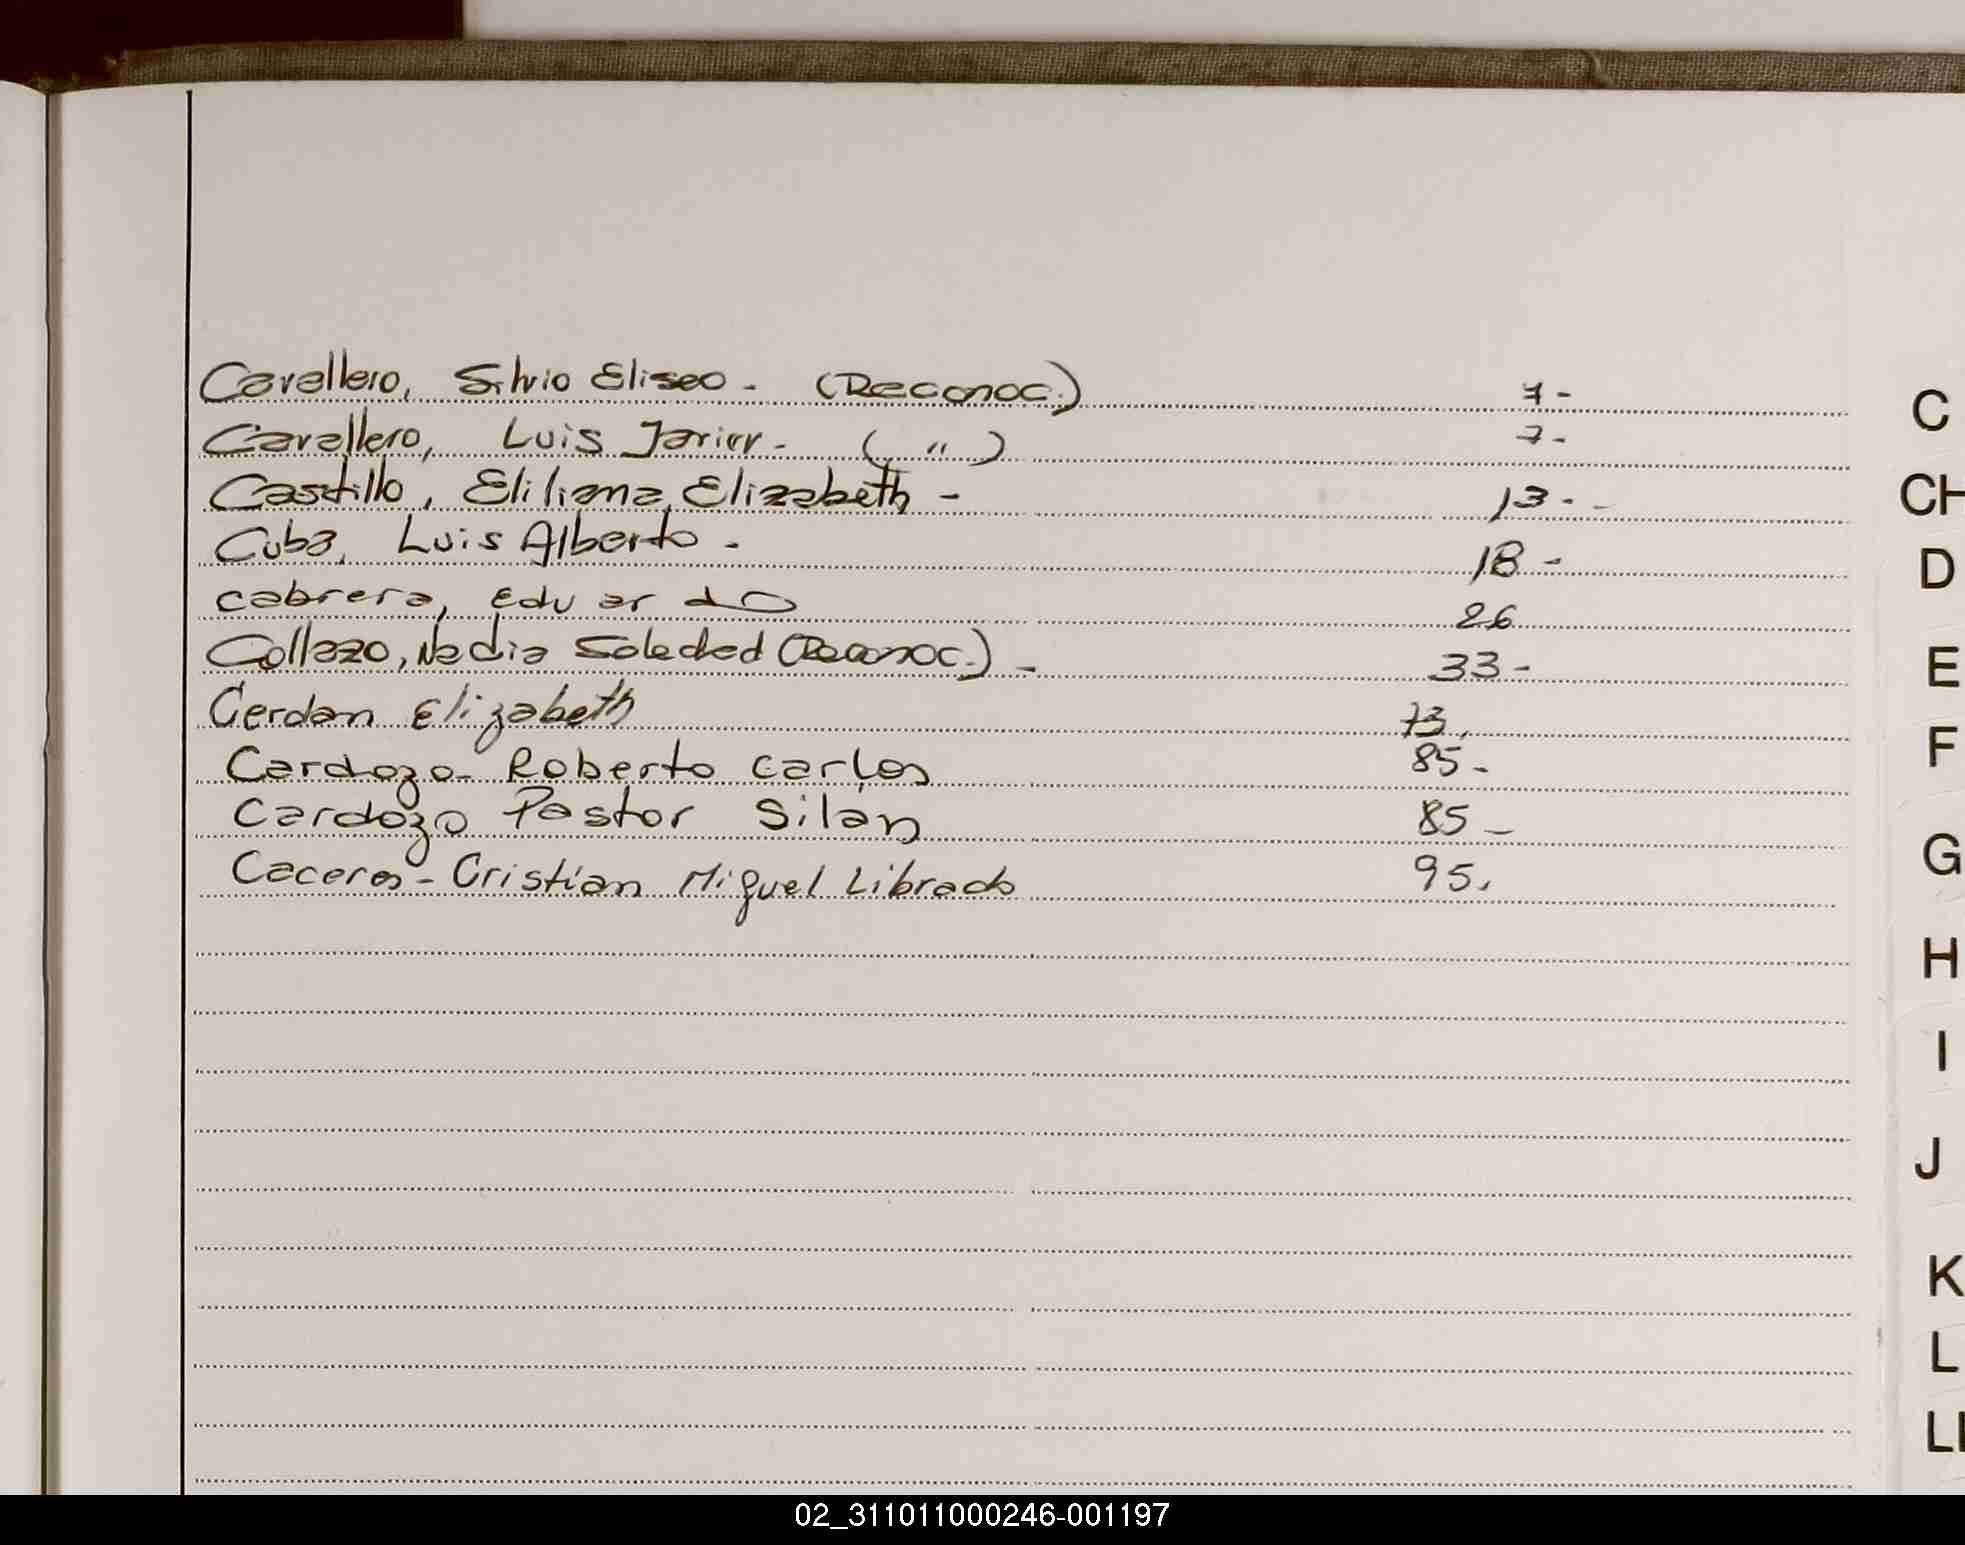 Cavallero, Silvio Eliseo - (Reconoc.) 7-
Cavallero, Luis Javier - ( " ) 7-
Castillo, Eliliana Elizabeth - 13--
Cuba, Luis Alberto - 18-
Cabrera, Eduardo 26
Collazo, Nadia Soledad (Reconoc.) - 33-
Cerdan Elizabeth 73.
Cardozo - Roberto Carlos 85-
Cardozo Pastor Silán 85-
Caceres - Cristian Miguel Librado 95.
C
CH
D
E
F
G
H
I
J
K
L
LL
02_311011000246-001197